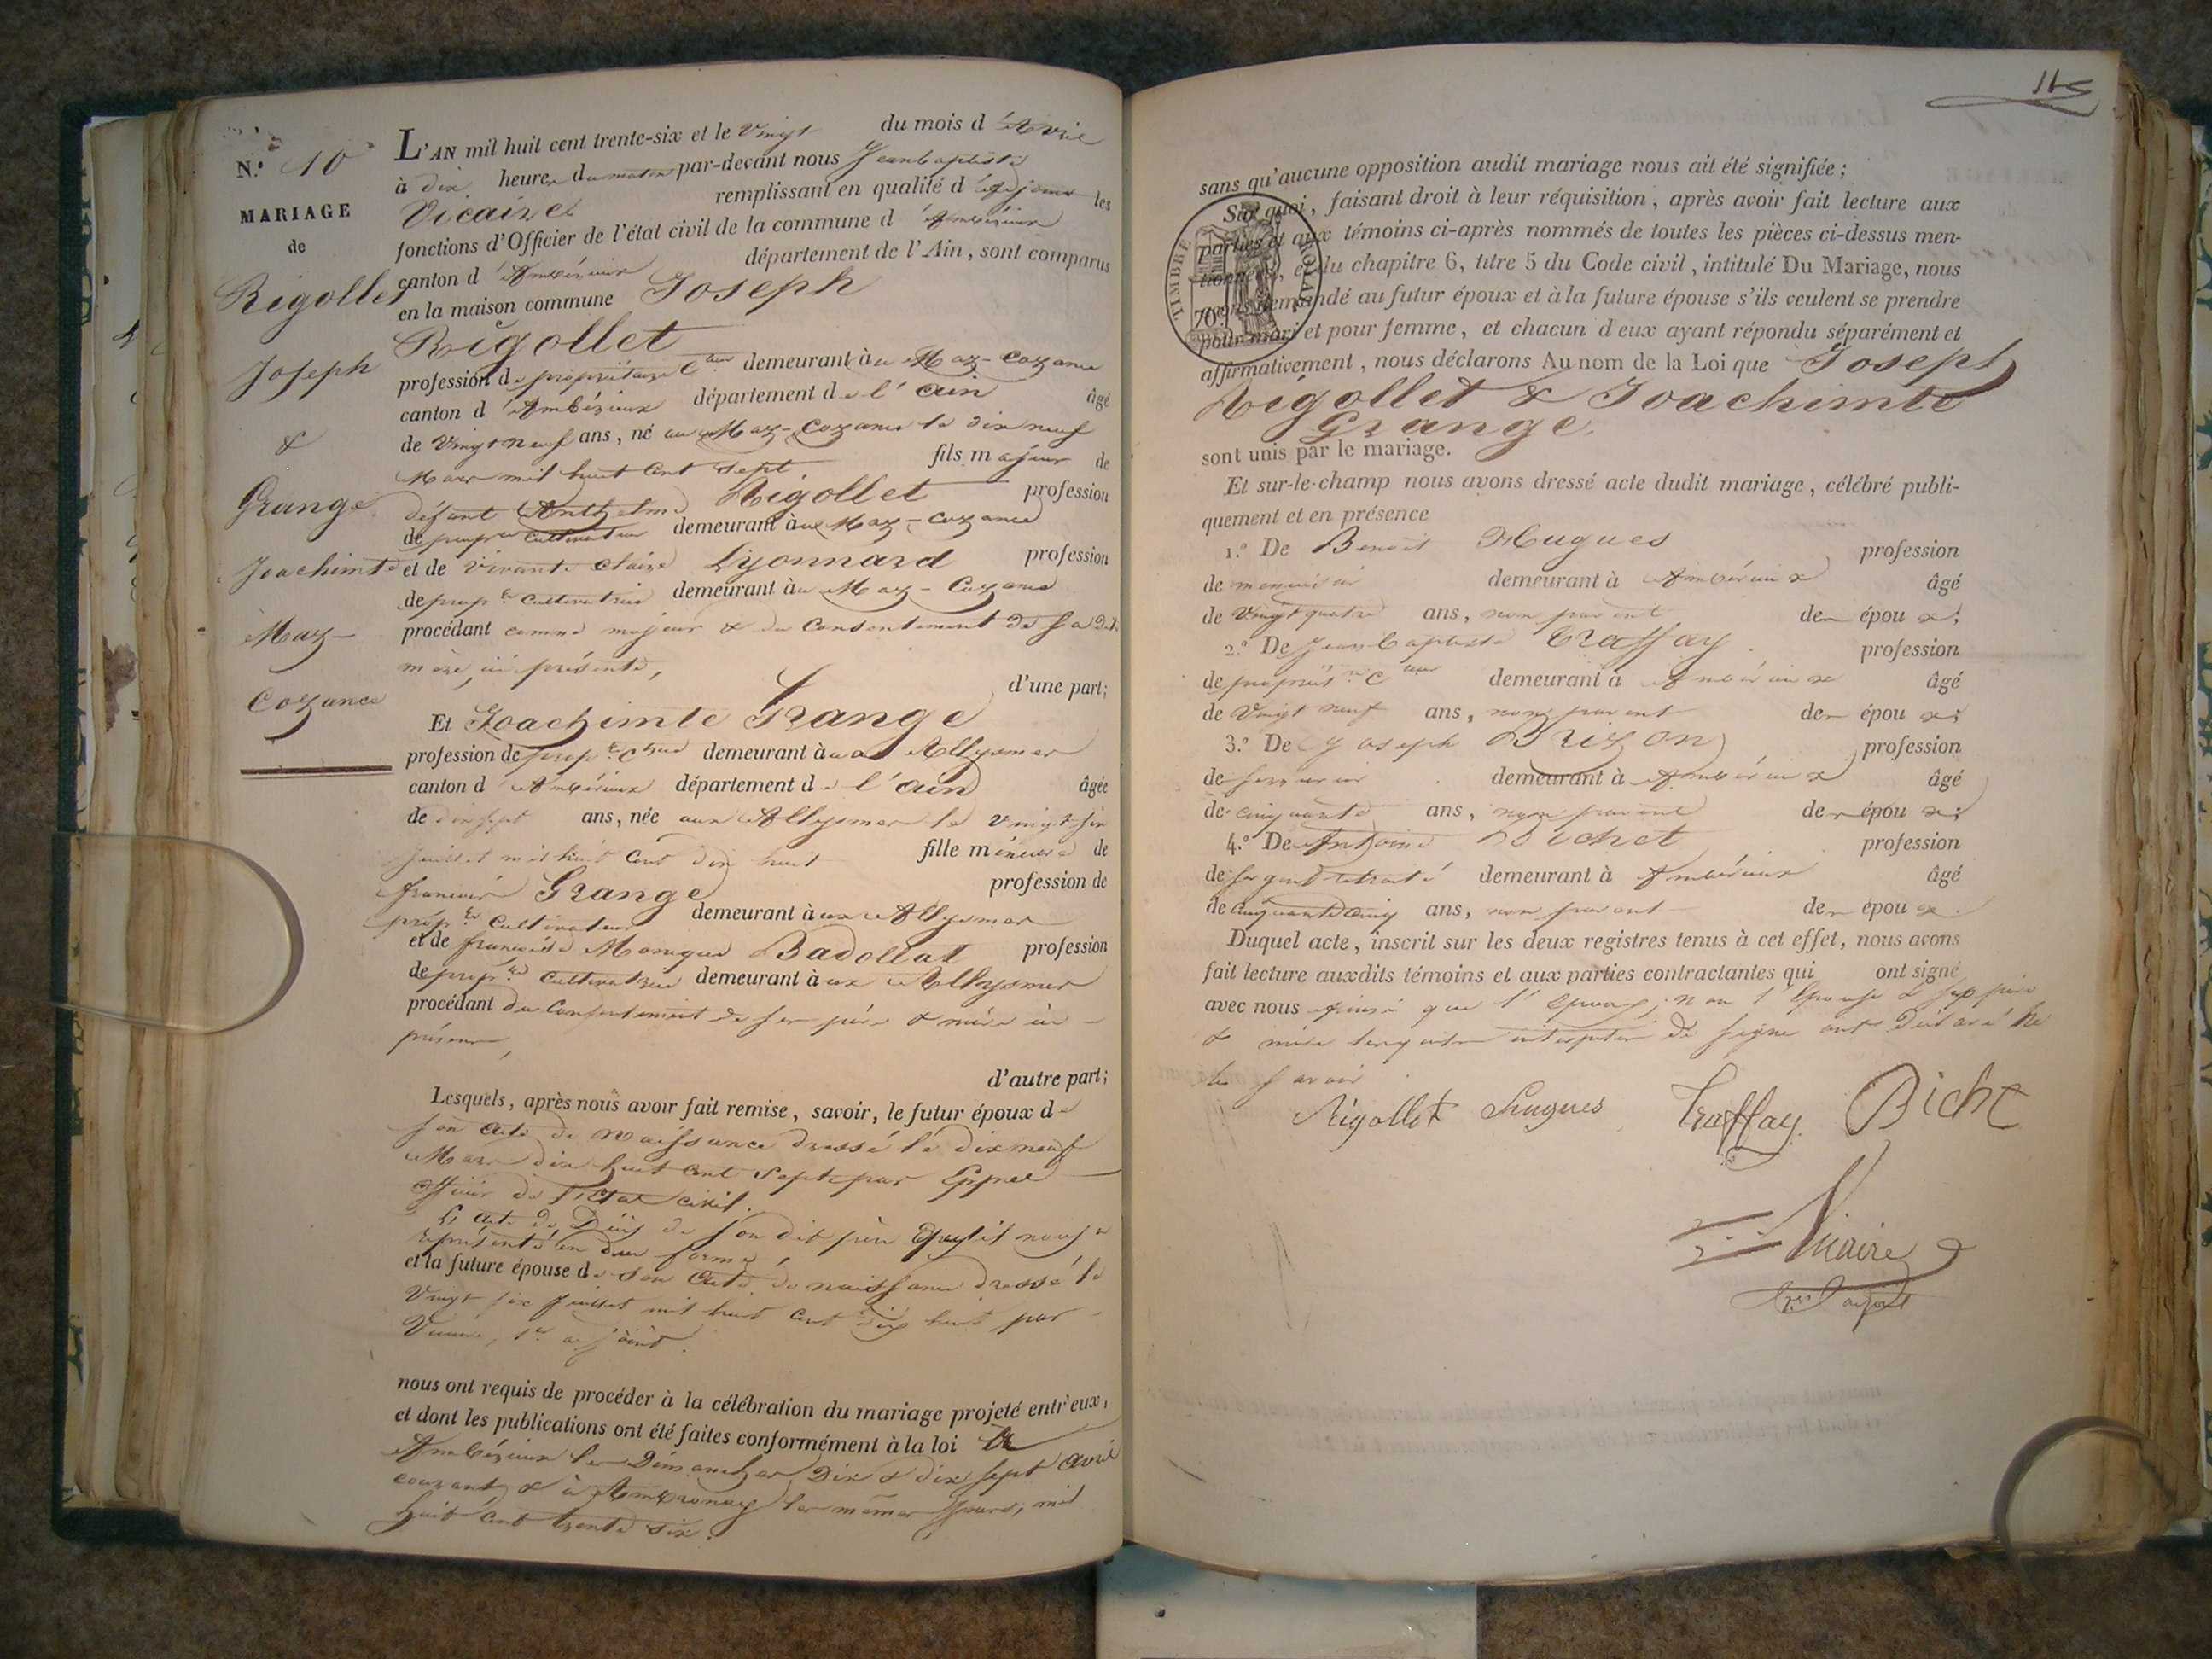 N.º 10
MARIAGE
de
Rigollet
Joseph
&
Grange
Joachimte
Maz-
Cozance
L'AN mil huit cent trente-six et le Vingt du mois d'Avril
à dix heures du matin par-devant nous Jean Baptiste
Vicaire remplissant en qualité d'adjoint les
fonctions d'Officier de l'état civil de la commune d'Ambérieux
canton d'Ambérieux département de l'Ain, sont comparus
en la maison commune Joseph
Rigollet
profession de propriétaire C.teur demeurant au Maz-Cozance
canton d'Ambérieux département de l'ain âgé
de Vingt neuf ans, né au Maz-Cozance le dix neuf
Mars mil huit Cent Sept fils majeur de
défunt Anthelme Rigollet profession
de prop.re Cultivateur demeurant au Maz-Cozance
et de vivante Claire Lyonnard profession
de prop.re Cultivatrice demeurant au Maz-Cozance
procédant comme majeur & du Consentement de sa d.te
mère, ici présente,
d'une part;
Et Joachimte Grange
profession de prop.re C.trice demeurant aux Allymes
canton d'Ambérieux département de l'ain âgée
de dix sept ans, née aux Allymes le vingt six
juillet mil huit Cent dix huit fille mineure de
francois Grange profession de
prop.re Cultivateur demeurant aux Allymes
et de francoise Monique Badollat profession
de prop.re Cultivatrice demeurant aux Allymes
procédant du Consentement de ses père & mère ici
présens,
d'autre part;
Lesquels, après nous avoir fait remise, savoir, le futur époux de
son acte de Naissance dressé le dix neuf
Mars dix huit Cent Sept par
officier de l'Etat civil.
L'acte de Décès de son dit père qu'il nous a
représenté en due forme,
et la future épouse de son acte de naissance dressé le
Vingt six juillet mil huit Cent dix huit par
Vicaire, 1.er adjoint.
nous ont requis de procéder à la célébration du mariage projeté entr'eux,
et dont les publications ont été faites conformément à la loi à
Ambérieux les Dimanches Dix & dix sept avril
courant & à Ambronay les mêmes jours, mil
huit Cent trente six.
sans qu'aucune opposition audit mariage nous ait été signifiée;
Sur quoi, faisant droit à leur réquisition, après avoir fait lecture aux
parties et aux témoins ci-après nommés de toutes les pièces ci-dessus men-
tionnées, et du chapitre 6, titre 5 du Code civil, intitulé Du Mariage, nous
avons demandé au futur époux et à la future épouse s'ils veulent se prendre
pour mari et pour femme, et chacun d'eux ayant répondu séparément et
affirmativement, nous déclarons Au nom de la Loi que Joseph
Rigollet & Joachimte
Grange.
sont unis par le mariage.
Et sur-le-champ nous avons dressé acte dudit mariage, célébré publi-
quement et en présence
1.º De Benoit Hugues profession
de menuisier demeurant à Ambérieux âgé
de Vingt quatre ans, non parent des époux;
2.º De Jean Baptiste Traffay profession
de propriét.re C.teur demeurant à Ambérieux âgé
de Vingt neuf ans, non parent des époux;
3.º De Joseph Brizon profession
de serrurier demeurant à Ambérieux âgé
de cinquante ans, non parent des époux;
4.º De Antoine Bichet profession
de sergent retraité demeurant à Ambérieux âgé
de cinquante cinq ans, non parent des époux.
Duquel acte, inscrit sur les deux registres tenus à cet effet, nous avons
fait lecture auxdits témoins et aux parties contractantes qui ont signé
avec nous ainsi que l'époux, non l'épouse & ses père
& mère de signer ont déclaré ne
le savoir.
Rigollet Hugues Traffay Biche
Vicaire
TIMBRE ROYAL
70 c